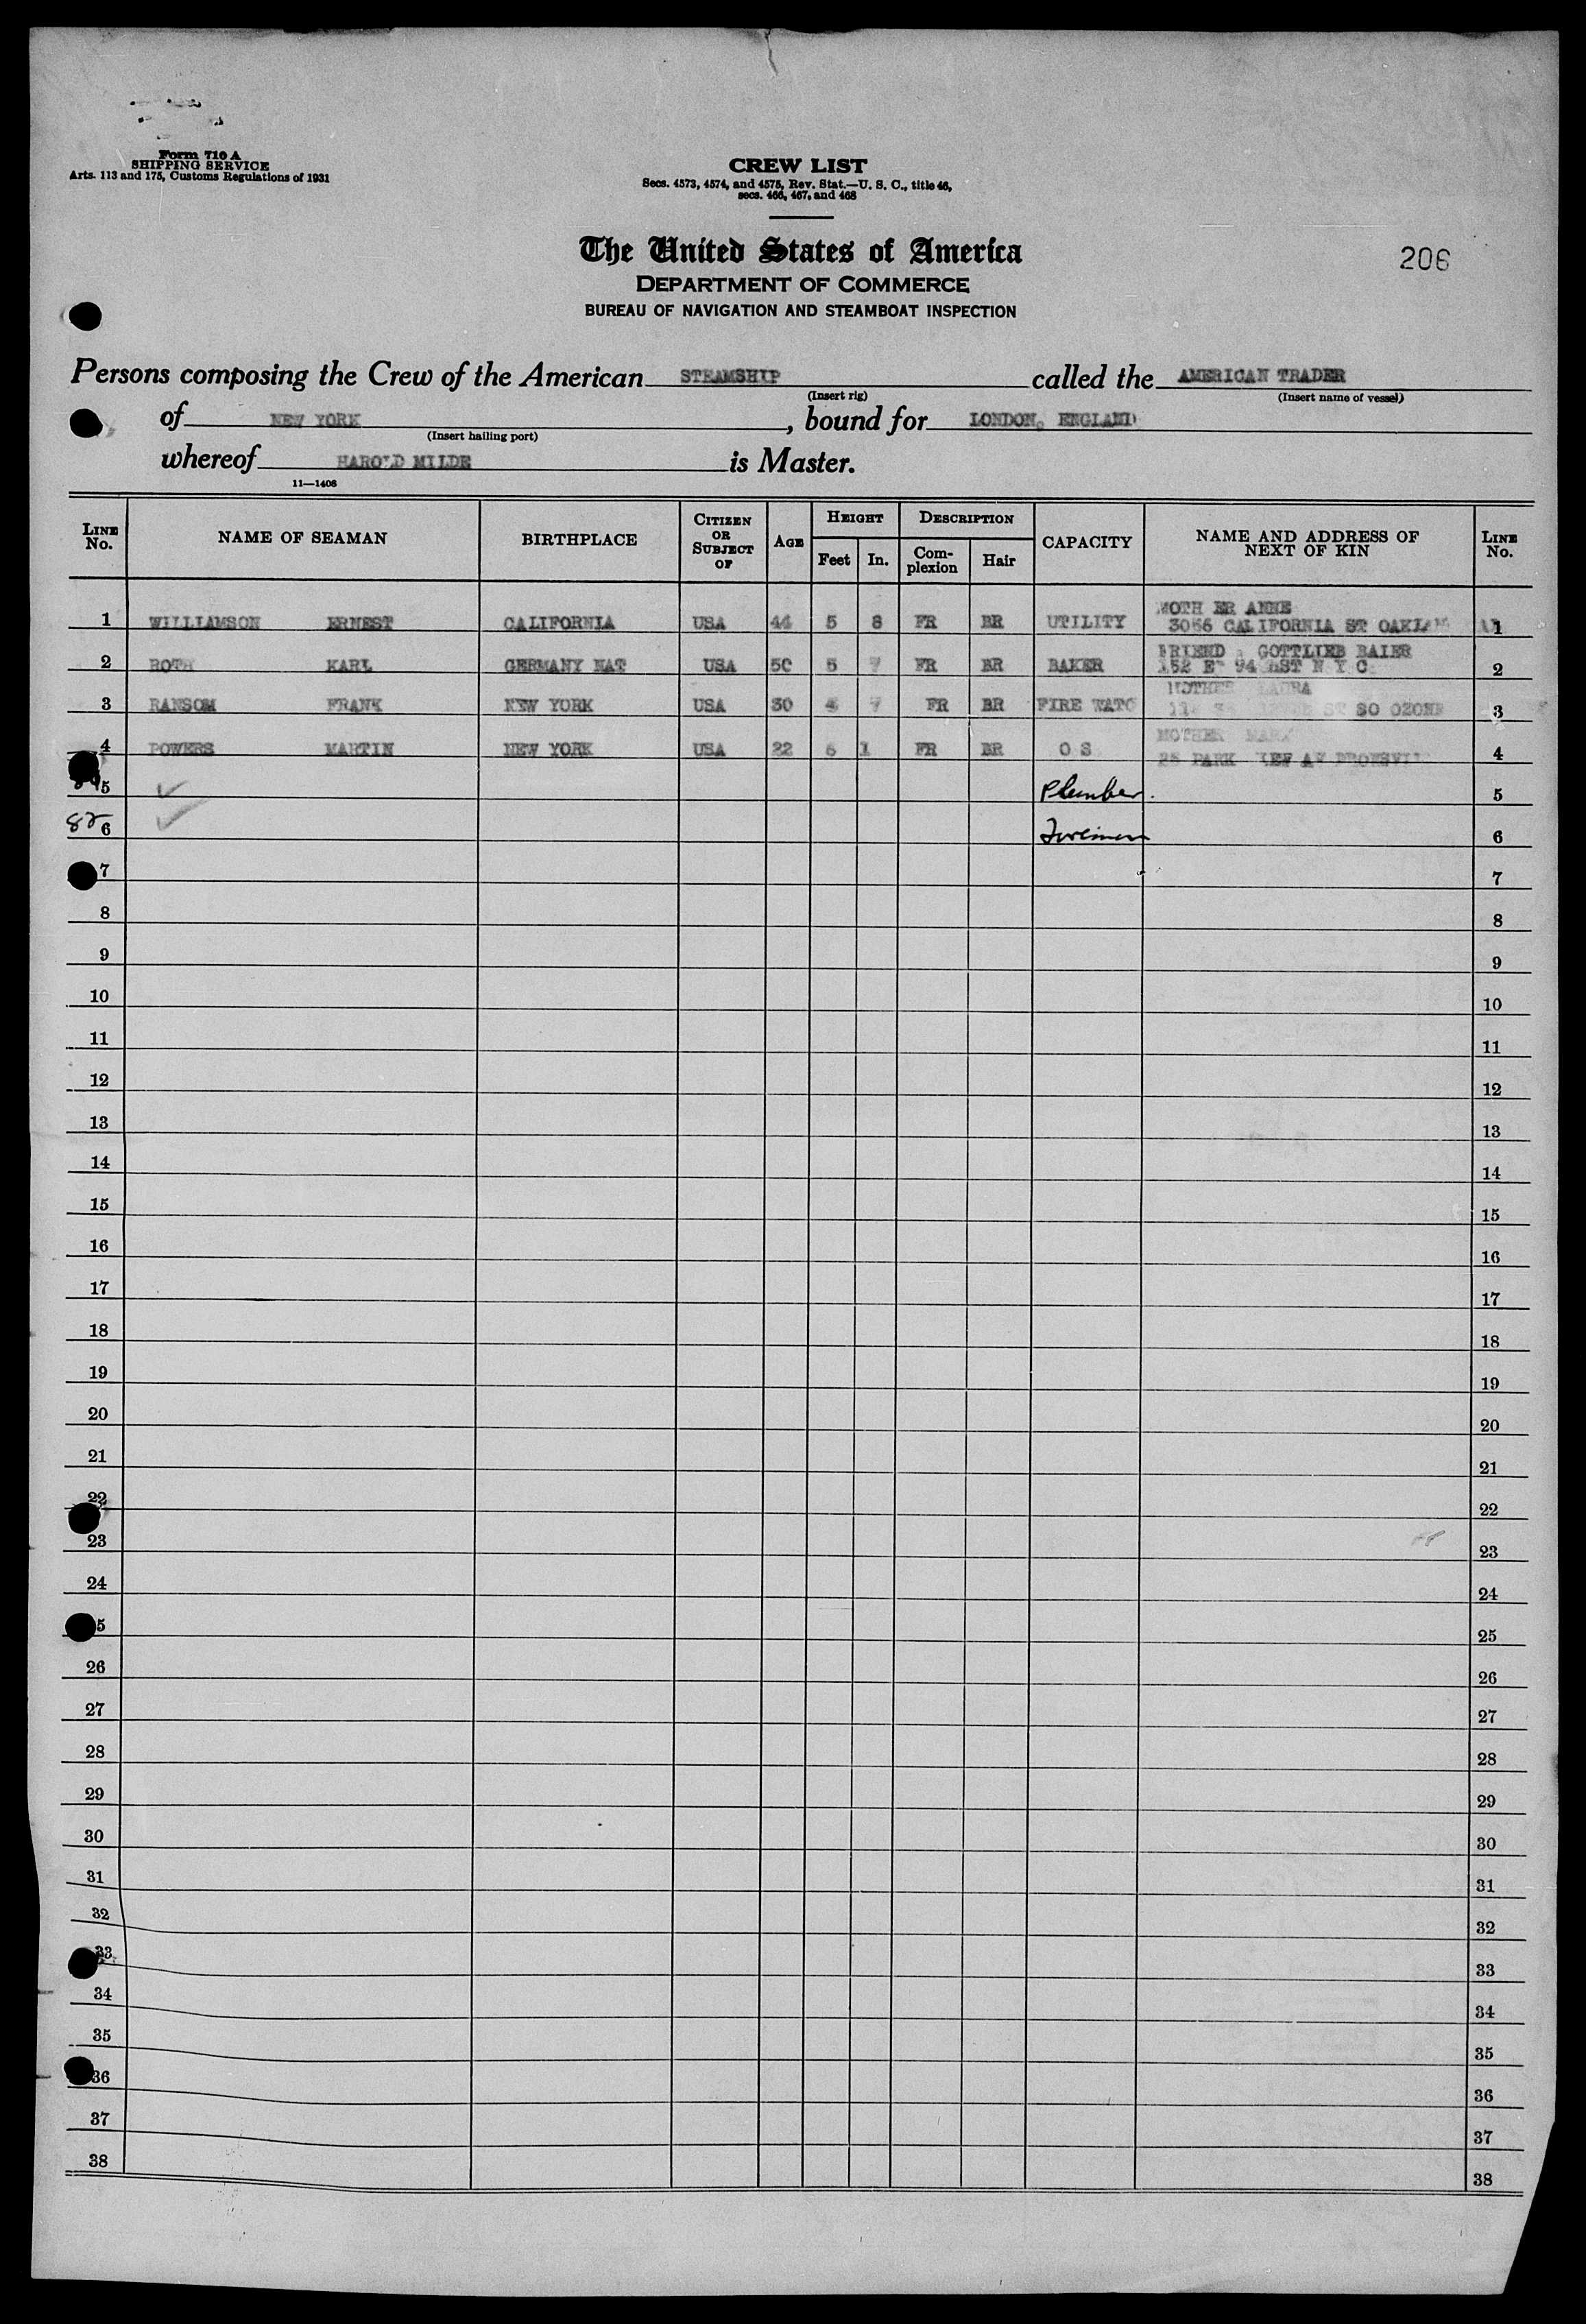 Form 710 A
SHIPPING SERVICE
Arts. 113 and 175, Customs Regulations of 1931
CREW LIST
Secs. 4573, 4574, and 4575, Rev. Stat.—U. S. C., title 46,
secs. 466, 467, and 468
The United States of America
DEPARTMENT OF COMMERCE
BUREAU OF NAVIGATION AND STEAMBOAT INSPECTION
206
Persons composing the Crew of the American STEAMSHIP called the AMERICAN TRADER
(Insert rig) (Insert name of vessel)
of NEW YORK, bound for LONDON, ENGLAND
(Insert hailing port)
whereof HAROLD MILDE is Master.
11—1408
LINE No. NAME OF SEAMAN BIRTHPLACE CITIZEN OR SUBJECT OF AGE HEIGHT Feet In. DESCRIPTION Complexion Hair CAPACITY NAME AND ADDRESS OF NEXT OF KIN LINE No.
MOTH ER ANNE
1 WILLIAMSON ERNEST CALIFORNIA USA 44 5 8 FR BR UTILITY 3066 CALIFORNIA ST 1
FRIEND GOTTLIEB BAIER
2 ROTH KARL GERMANY NAT USA 50 5 7 FR BR BAKER 152 E 94 ST N Y C 2
MOTHER LAURA
3 RANSOM FRANK NEW YORK USA 30 7 FR BR FIRE WATC ST SO OZONE 3
MOTHER
4 POWERS MARTIN NEW YORK USA 22 6 1 FR BR O S 25 PARK AV 4
5 Plumber. 5
82 6 6
7 7
8 8
9 9
10 10
11 11
12 12
13 13
14 14
15 15
16 16
17 17
18 18
19 19
20 20
21 21
22 22
23 23
24 24
5 25
26 26
27 27
28 28
29 29
30 30
31 31
32 32
33 33
34 34
35 35
36 36
37 37
38 38